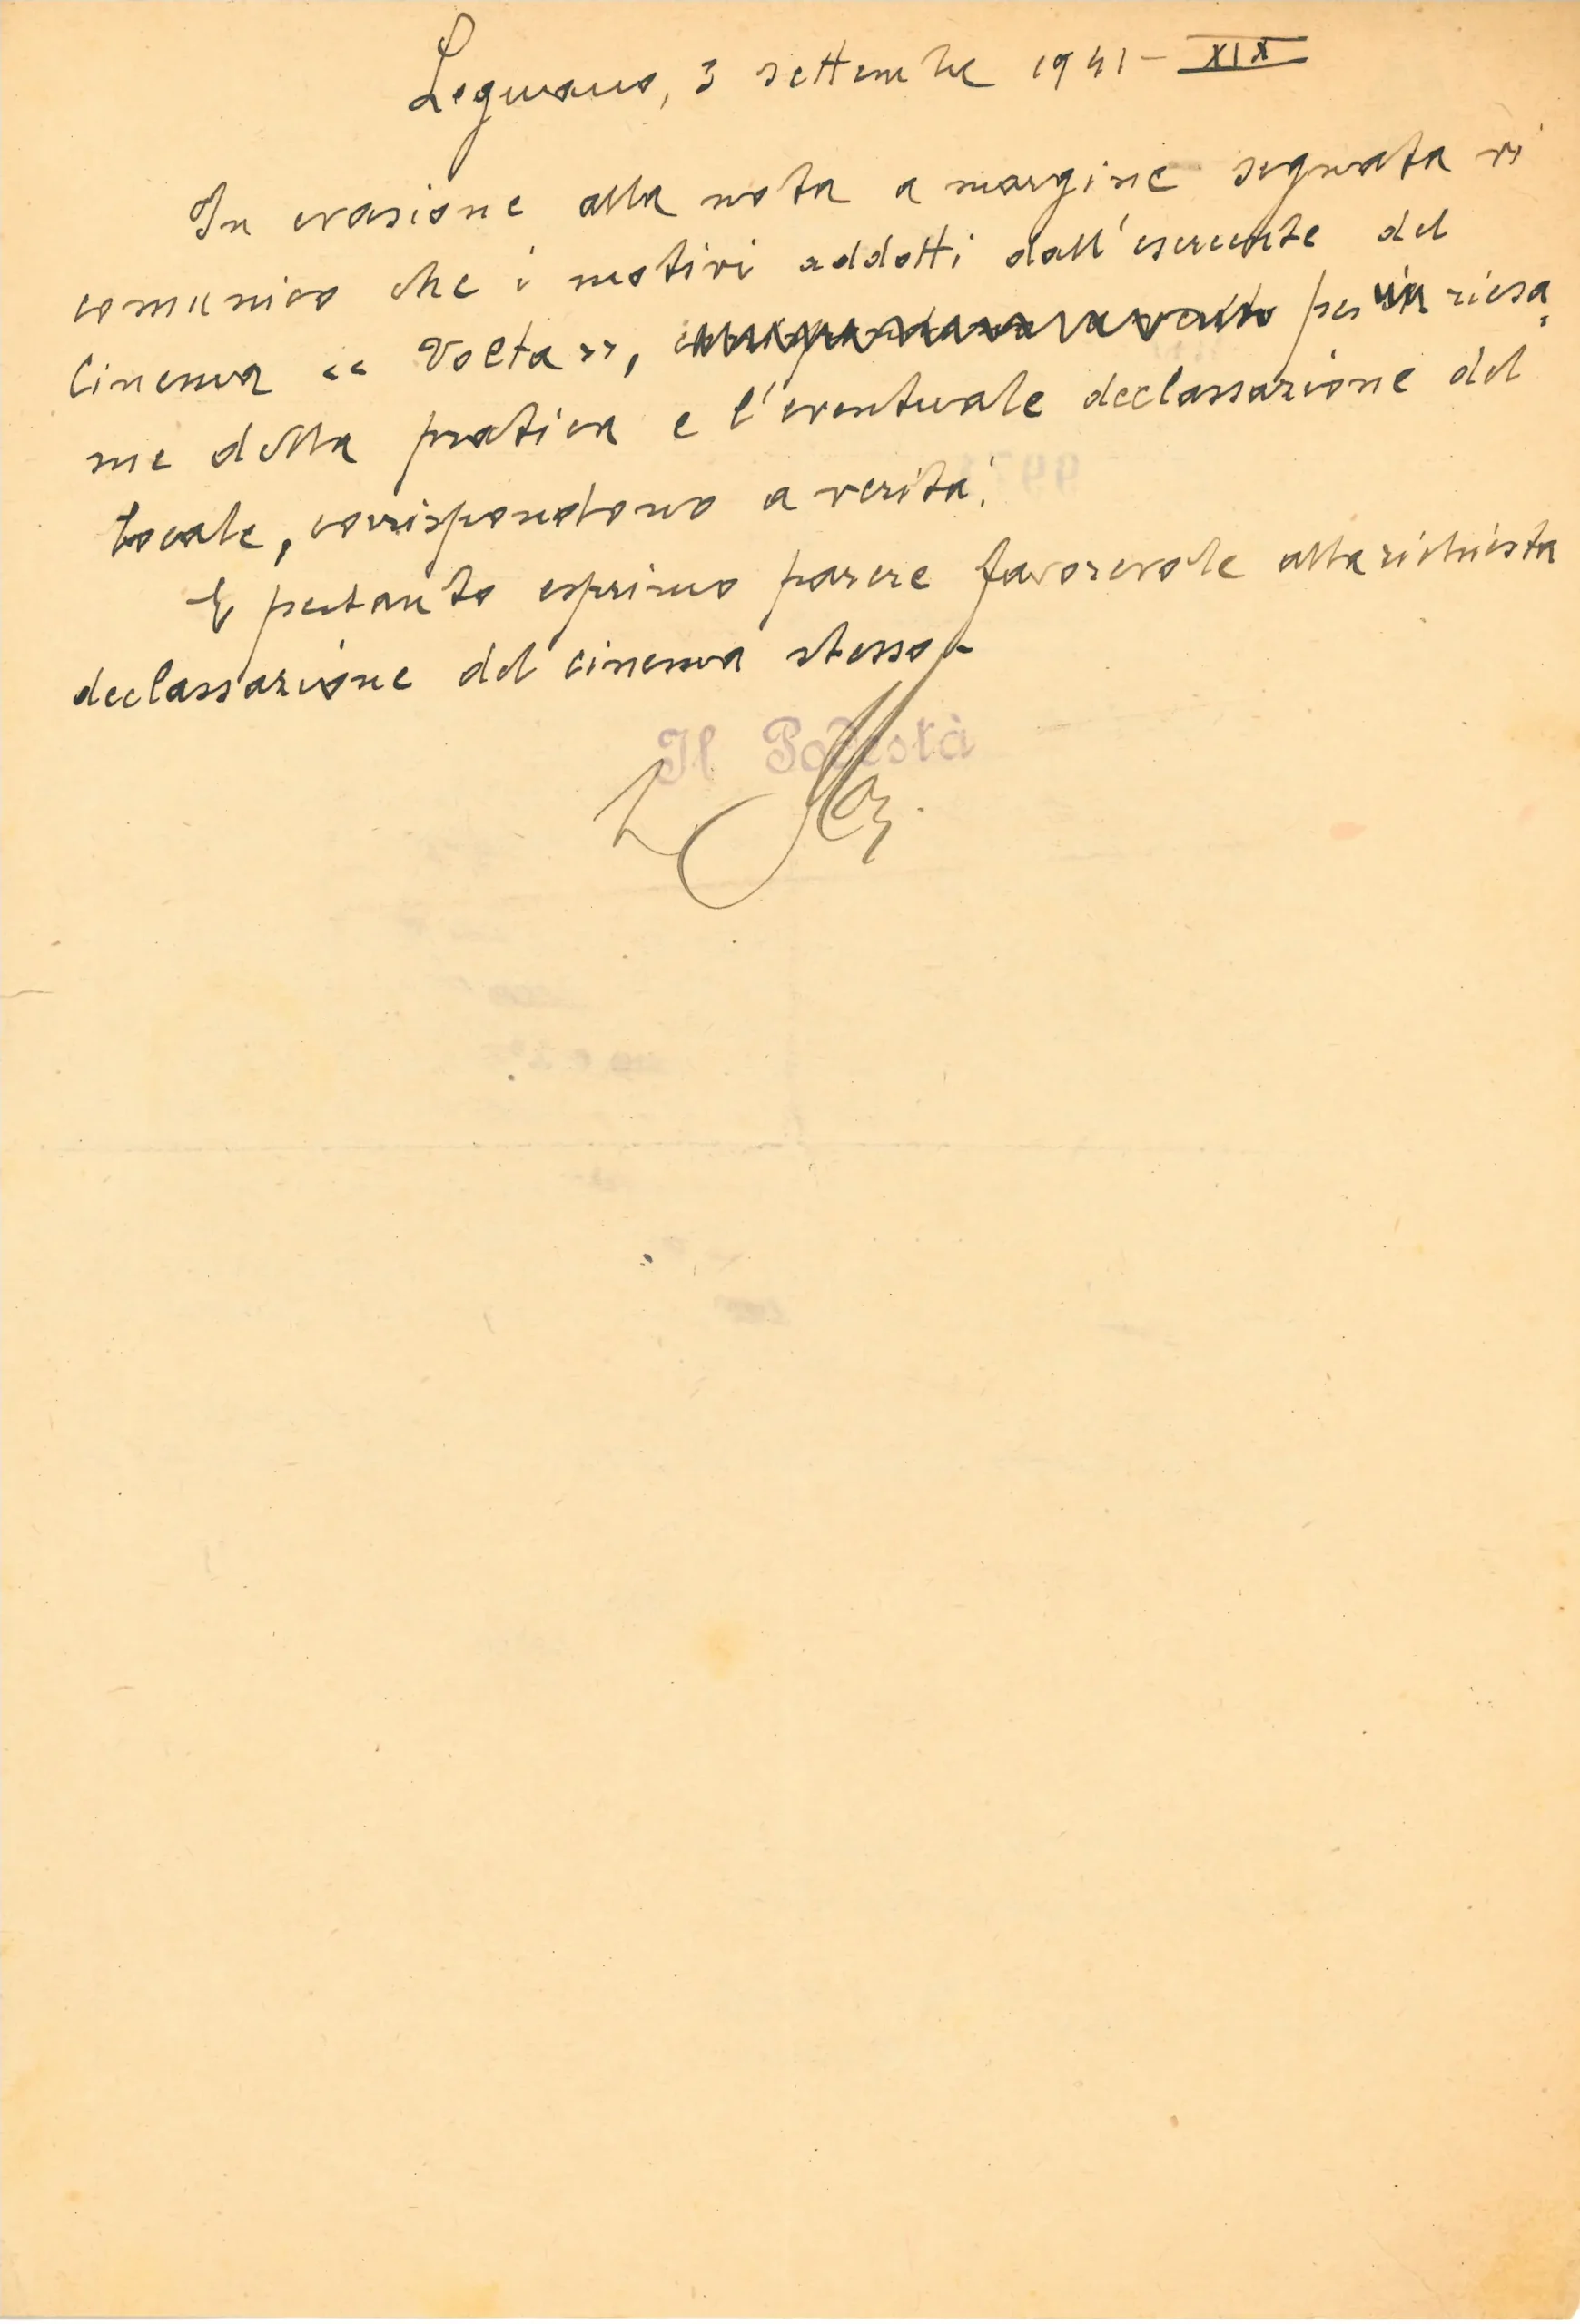 Legnano, 3 settembre 1941 - XIX
In evasione alla nota a margine segnata vi
comunico che i motivi addotti dall'esercente del
Cinema « Volta », per un riesa
me della pratica e l'eventuale declassazione del
locale, corrispondono a verità.
E pertanto esprimo parere favorevole alla richiesta
declassazione del cinema stesso -
Il Podestà